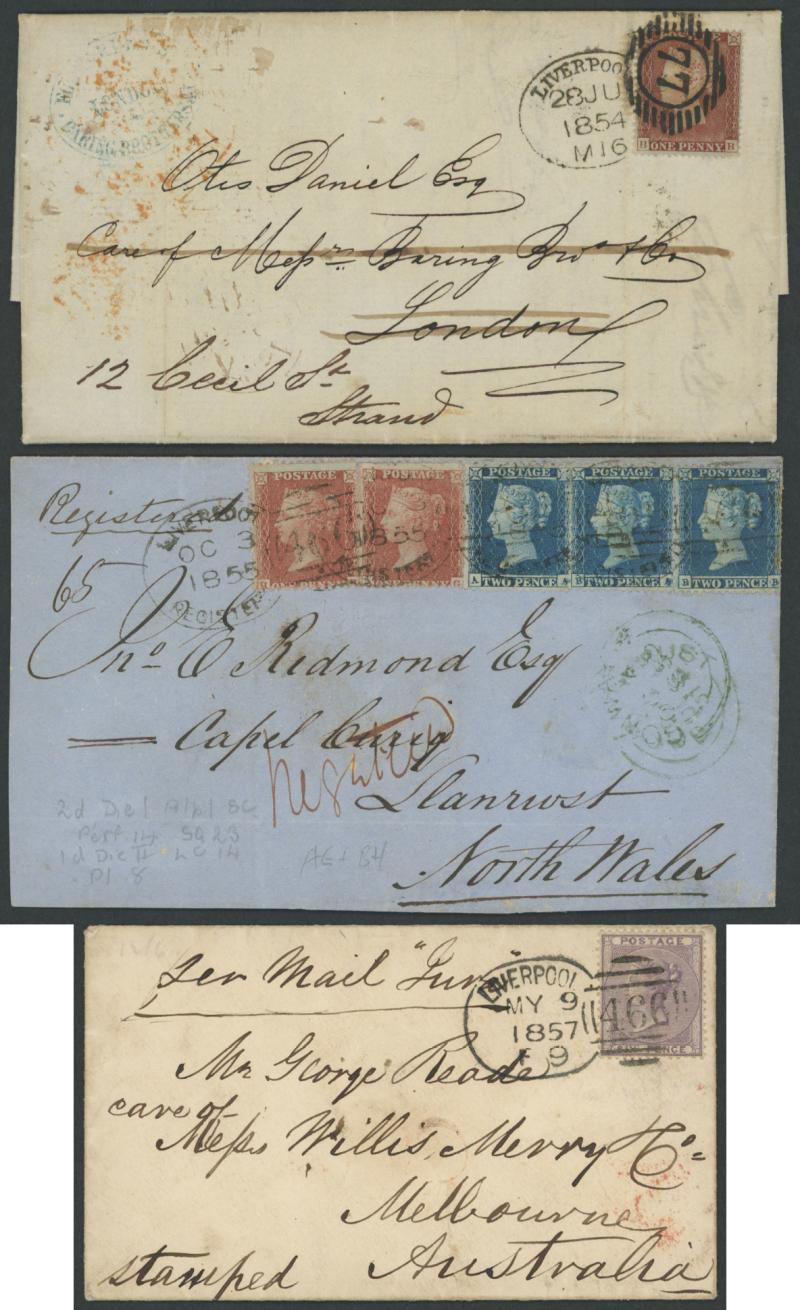 LIVERPOOL
28 JU
1854
M16
77
H ONE PENNY H
BARING BROTHERS
Otis Daniel Esq
Care of Messrs Baring Bros & Co
London
12 Cecil St
Strand
Registered
65
LIVERPOOL
OC 3
1855
REGISTERED
466
1855
POSTAGE POSTAGE POSTAGE POSTAGE POSTAGE
ONE PENNY
PENNY G
A TWO PENCE A
B TWO PENCE A
B TWO PENCE B
Jno E Redmond Esq
Capel Curig
Registered
Llanrwst
North Wales
2d Die I Alph I SC
Perf 14 SG 23
1d Die II LC 14
Pl 8
per Mail
LIVERPOOL
MY 9
1857
F 9
466
POSTAGE
Mr George Reade
care of
Messrs Willis, Merry & Co
Melbourne
Australia
stamped